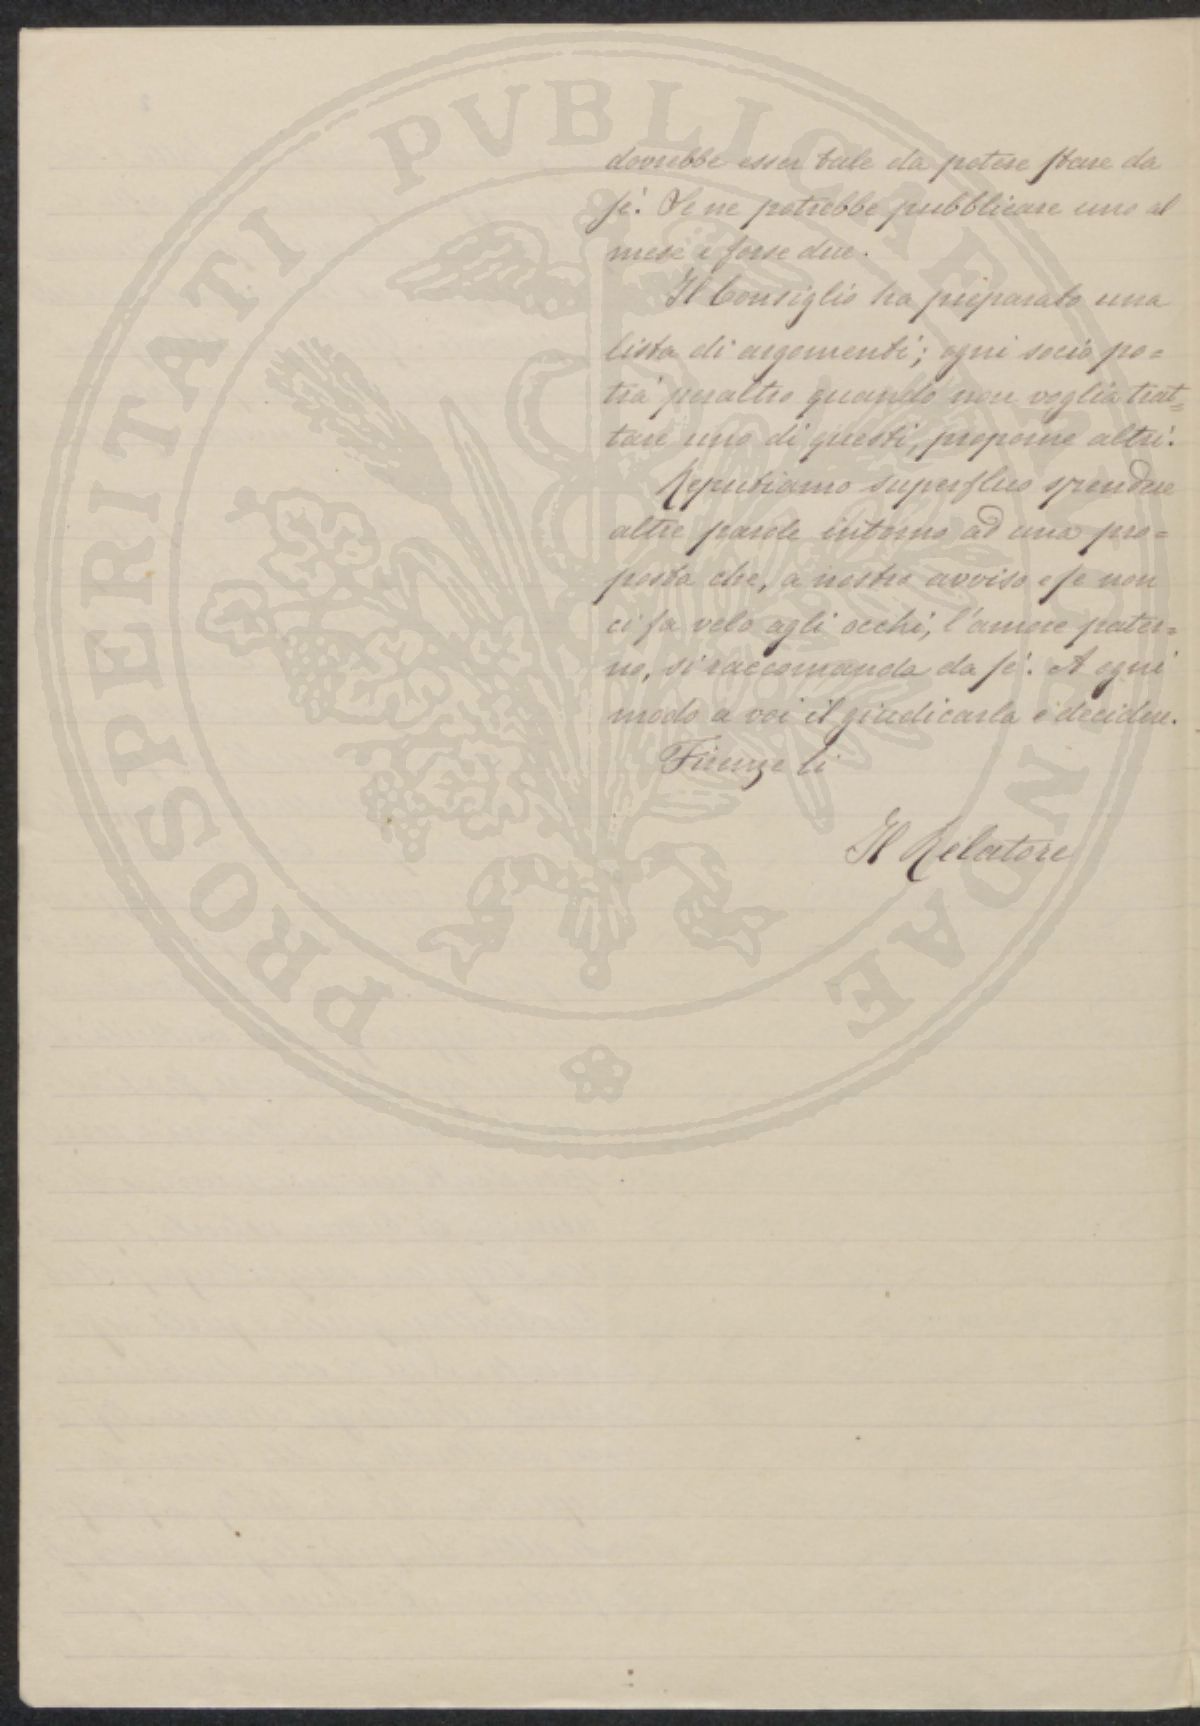 dovrebbe esser tale da potere stare da
sé. Se ne potrebbe pubblicare uno al
mese e forse due.
Il Consiglio ha preparato una
lista di argomenti; ogni socio po=
trà peraltro quando non voglia trat=
tare uno di questi, proporne altri.
Reputiamo superfluo spendere
altre parole intorno ad una pro=
posta che, a nostro avviso e se non
ci fa velo agli occhi, l'amore pater=
no, si raccomanda da sé. A ogni
modo a voi il giudicarla e decidere.
Firenze li
Il Relatore
PROSPERITATI PVBLICAE AVGENDAE